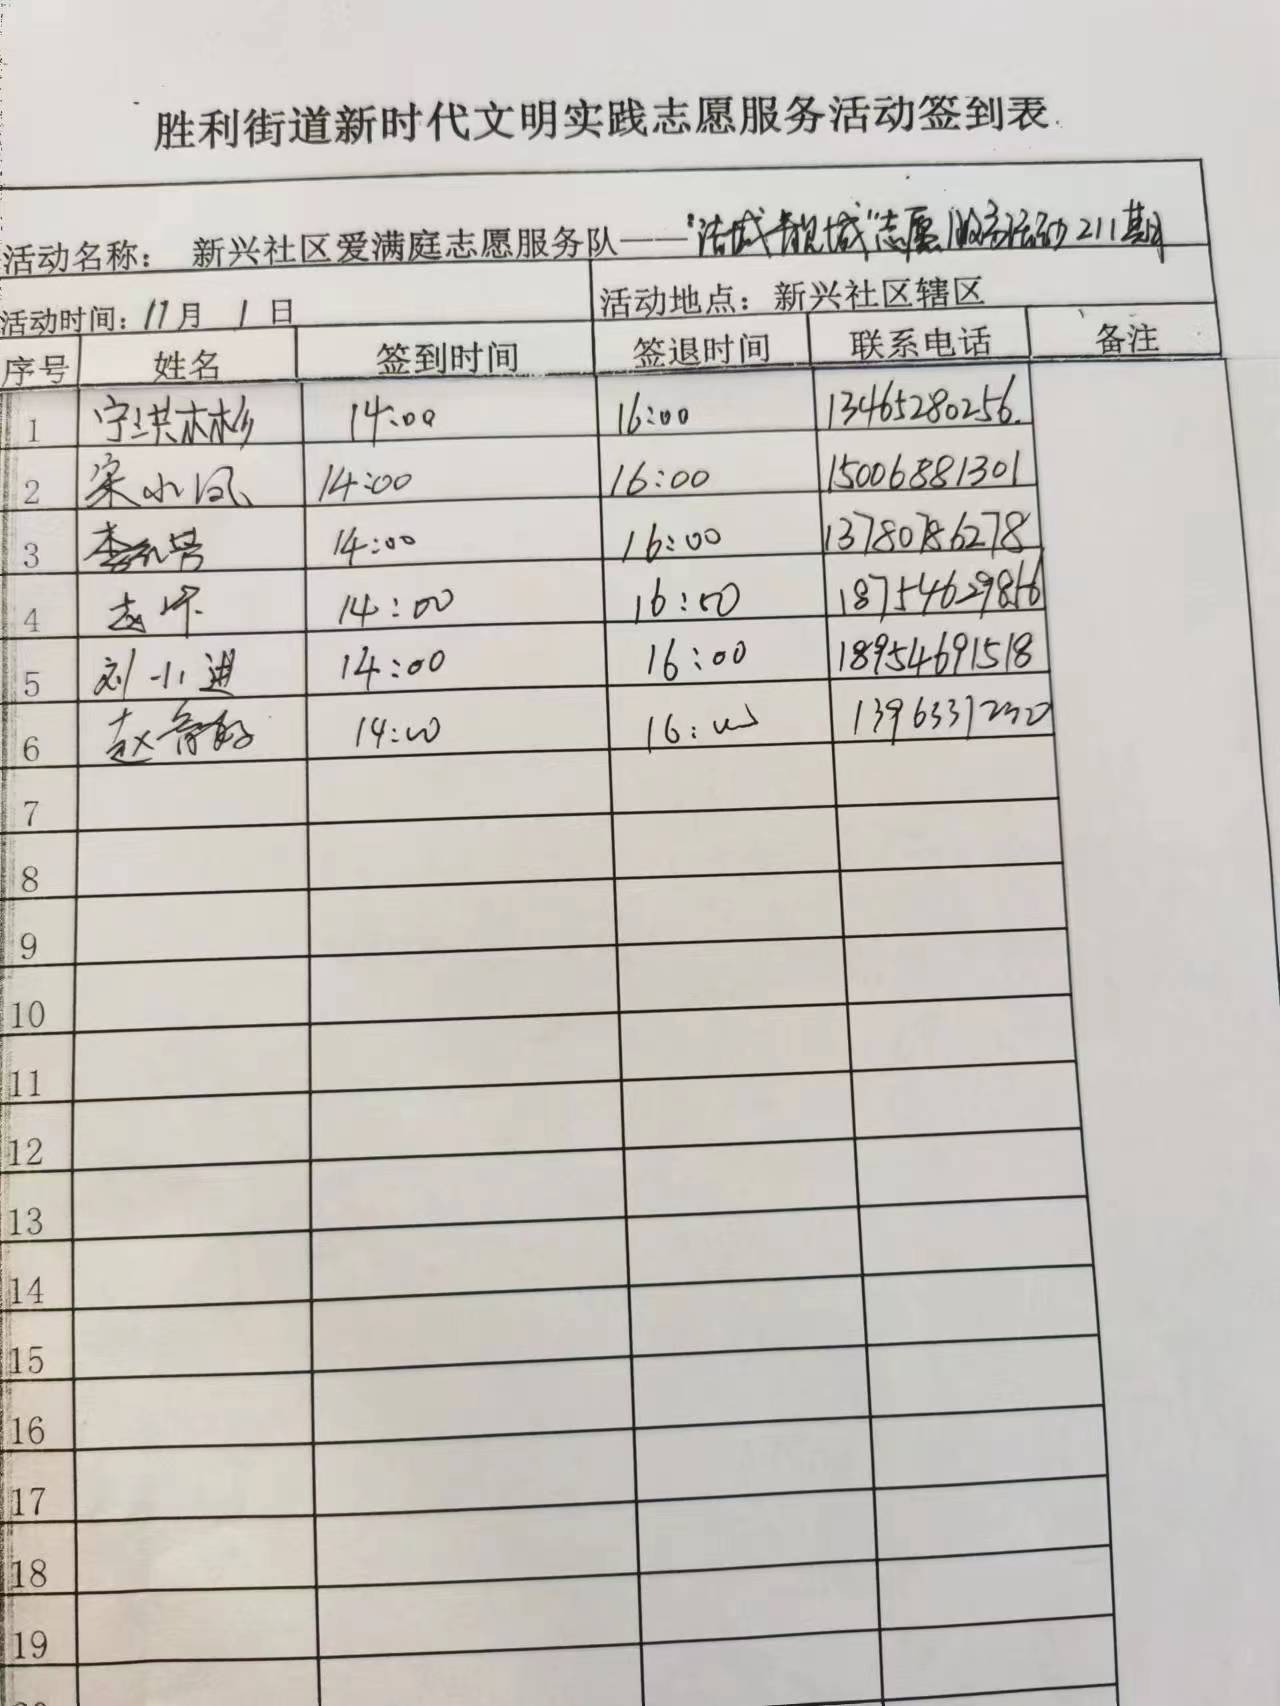 胜利街道新时代文明实践志愿服务活动签到表
活动名称： 新兴社区爱满庭志愿服务队——"洁城靓城"志愿服务活动211期
活动时间：11月 1 日 活动地点：新兴社区辖区
序号 姓名 签到时间 签退时间 联系电话 备注
1 宁洪彬 14:00 16:00 13465280256.
2 宋小凤 14:00 16:00 15006881301
3 14:00 16:00 13780786278
4 14:00 16:00
5 刘小进 14:00 16:00 18954691518
6 赵 14:00 16:00
7
8
9
10
11
12
13
14
15
16
17
18
19